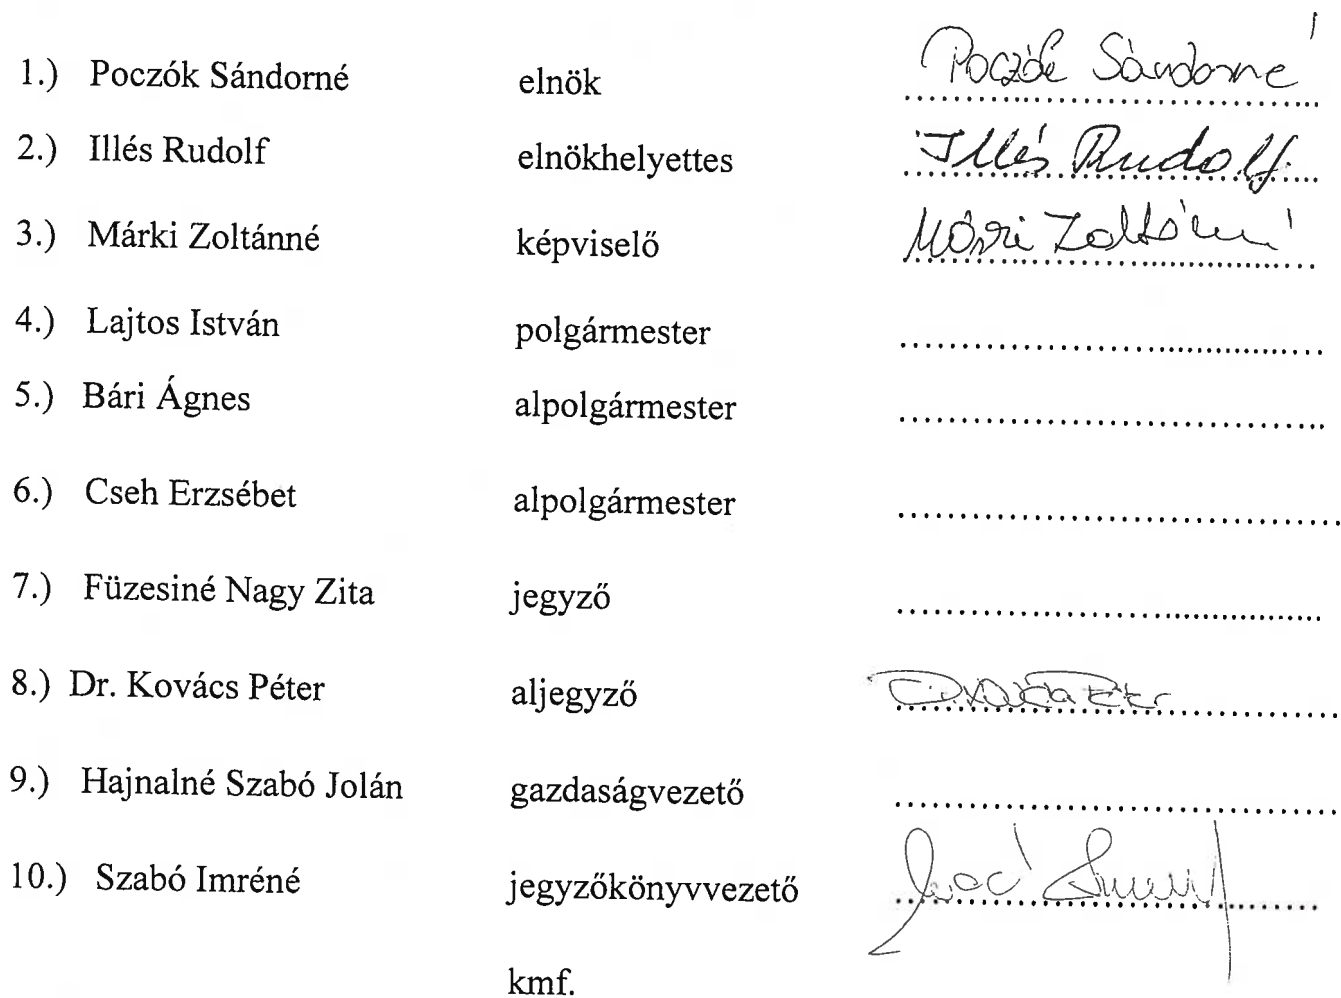 1.) Poczók Sándorné elnök Poczók Sándorné
2.) Illés Rudolf elnökhelyettes Illés Rudolf
3.) Márki Zoltánné képviselő Márki Zoltánné
4.) Lajtos István polgármester ..................................
5.) Bári Ágnes alpolgármester ..................................
6.) Cseh Erzsébet alpolgármester ..................................
7.) Füzesiné Nagy Zita jegyző ..................................
8.) Dr. Kovács Péter aljegyző Dr. Kovács Péter
9.) Hajnalné Szabó Jolán gazdaságvezető ..................................
10.) Szabó Imréné jegyzőkönyvvezető
kmf.